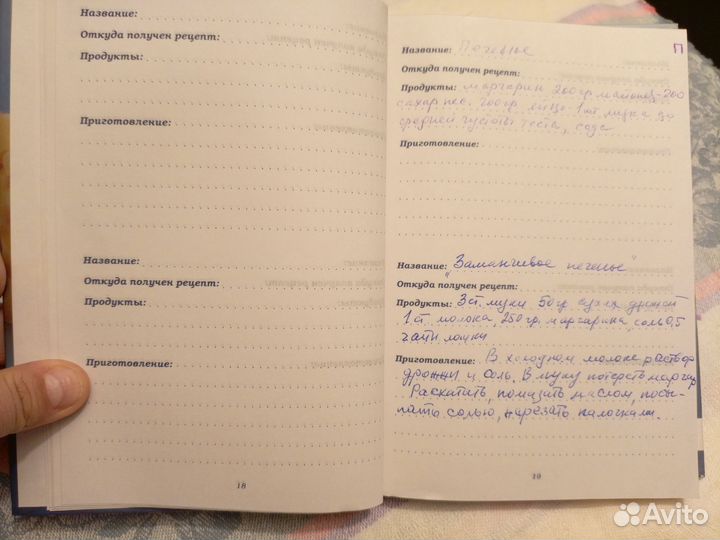 Название:
Откуда получен рецепт:
Продукты:
Приготовление:
Название:
Откуда получен рецепт:
Продукты:
Приготовление:
18
П
Название: Печенье
Откуда получен рецепт:
Продукты: маргарин 200гр майонез-200
сахар пес. 200гр яйцо-1шт мука до
средней густоты теста, сода
Приготовление:
Название: "Заманчивое печенье"
Откуда получен рецепт:
Продукты: 3ст. муки 50гр сухих дрожжей
1ст молока, 250гр. маргарина соль 0,5
чайн ложки
Приготовление: В холодном молоке раствор
дрожжи и соль. В муку потереть маргар
Раскатить, помазать маслом, посы-
пать солью, нарезать палочками..
19
Avito